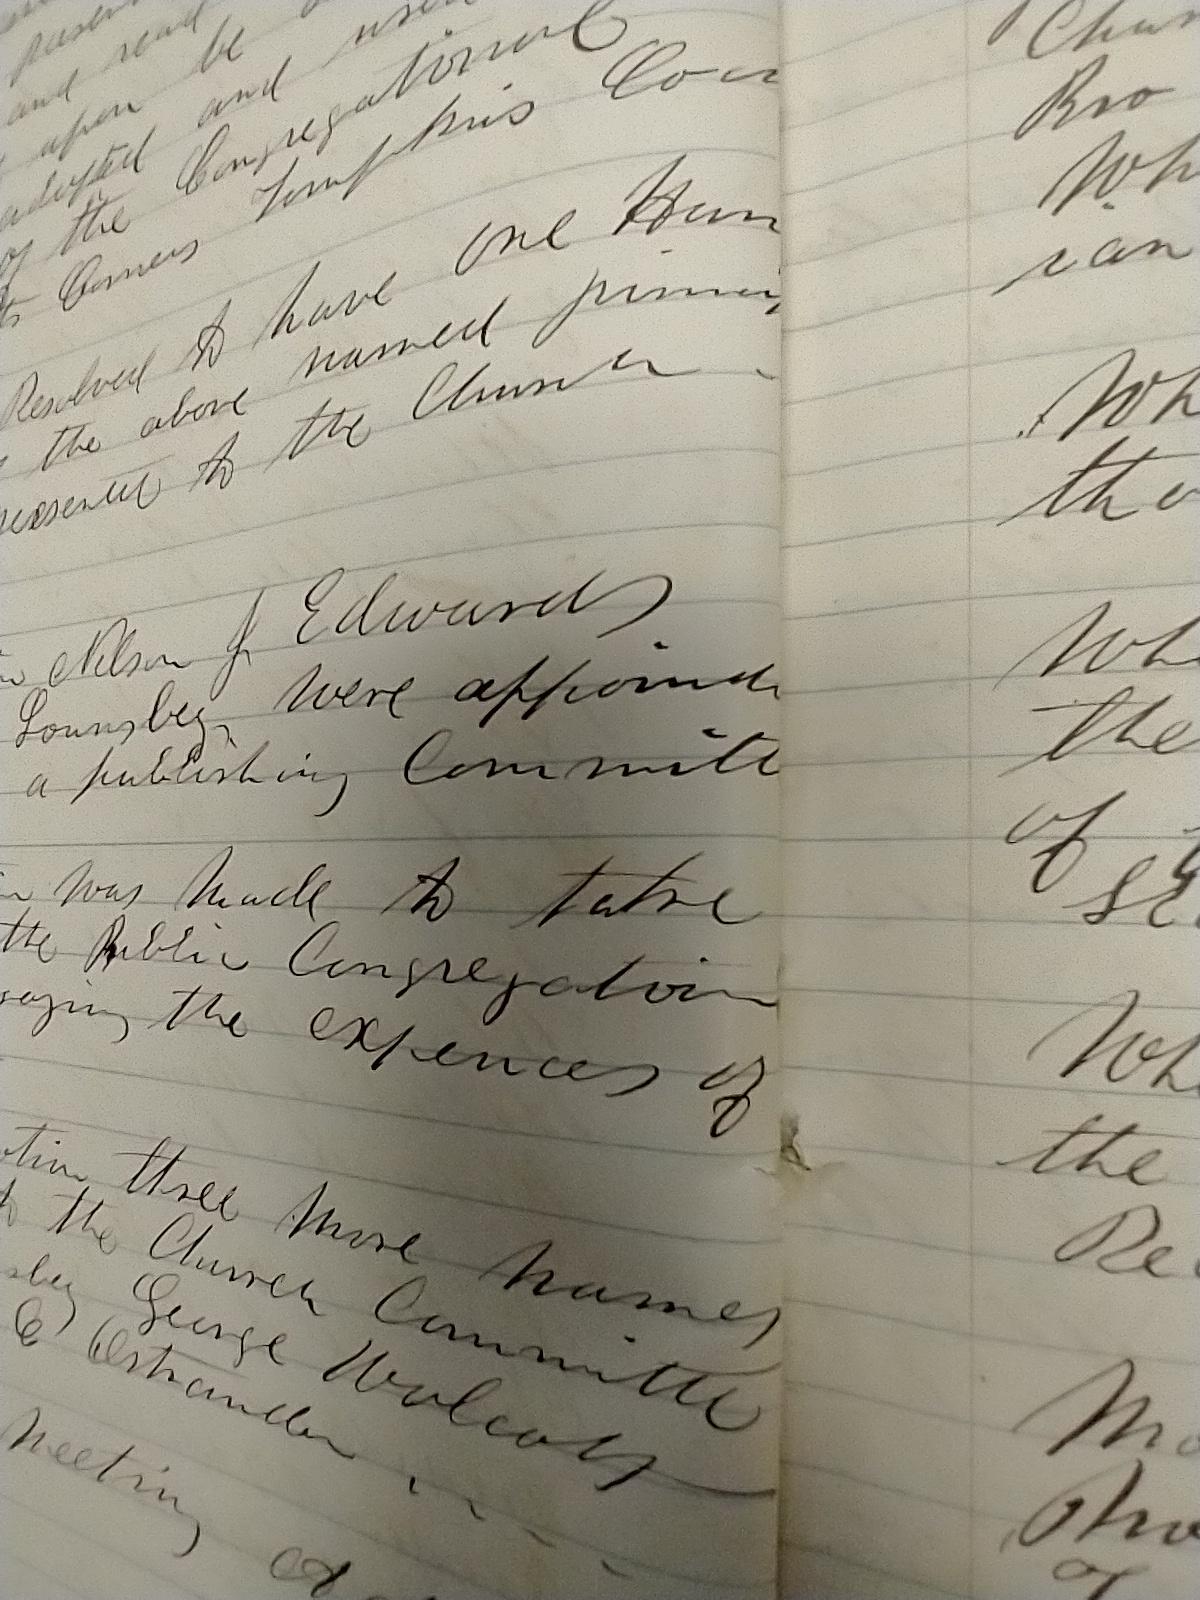 and read
upon be
adopted and used
of the Congregational
Corners Tompkins Coun
Resolved to have one Hun
the above named
to the Church
Nelson J Edwards
Lounsbey, were appoint
a publishing Committe
was made to take
the Public Congregation
the expences of
three more names
the Church Committe
George Wolcott
E Ostrander
Meeting
Chur
Bro
Wh
can
Wh
tha
Whe
the
of
Whe
the
Re
Mo